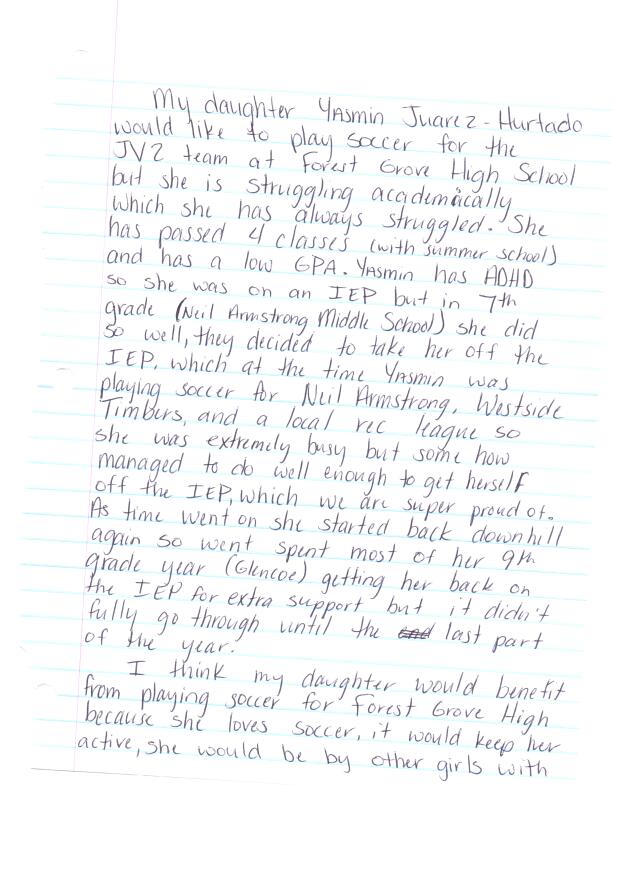 My daughter Yasmin Juarez-Hurtado
would like to play soccer for the
JV2 team at Forest Grove High School
but she is struggling academically
which she has always struggled. She
has passed 4 classes (with summer school)
and has a low GPA. Yasmin has ADHD
so she was on an IEP but in 7th
grade (Neil Armstrong Middle School) she did
so well, they decided to take her off the
IEP, which at the time Yasmin was
playing soccer for Neil Armstrong, Westside
Timbers, and a local rec league so
she was extremely busy but some how
managed to do well enough to get herself
off the IEP, which we are super proud of.
As time went on she started back downhill
again so went spent most of her 9th
grade year (Glencoe) getting her back on
the IEP for extra support but it didn't
fully go through until the end last part
of the year.
I think my daughter would benefit
from playing soccer for Forest Grove High
because she loves soccer, it would keep her
active, she would be by other girls with